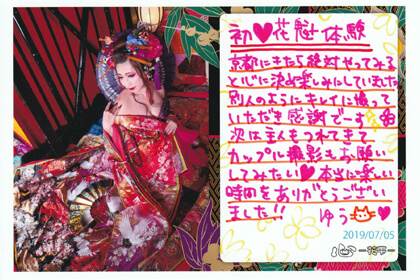 初♥花魁体験
京都にきたら絶対やってみる
と心に決め楽しみにしていました
別人のようにキレイに撮って
いただき感謝でーす
次は主人もつれてきて
カップル撮影もお願い
してみたい♥本当に楽しい
時間をありがとうござい
ました!!ゆう♥
2019/07/05